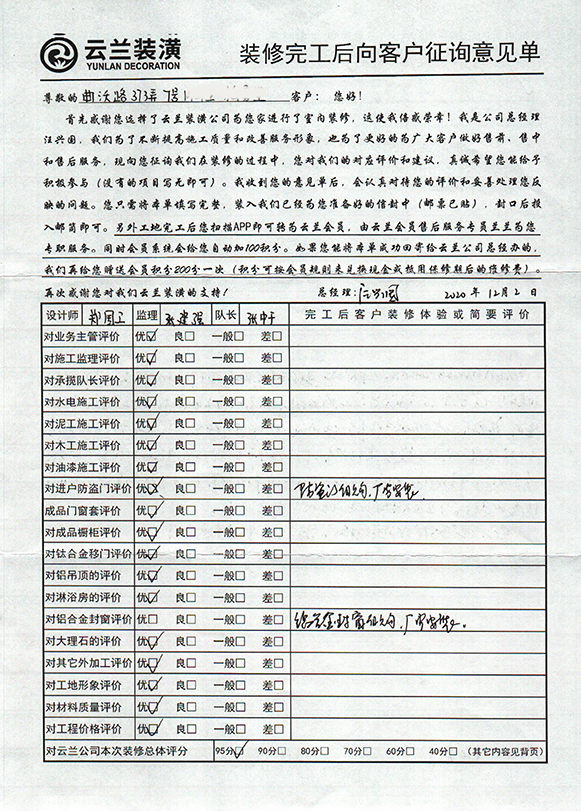 云兰装潢
YUNLAN DECORATION
装修完工后向客户征询意见单
尊敬的 曲沃路373弄 客户：您好！
首先感谢您选择了云兰装潢公司为您家进行了室内装修，这使我倍感荣幸！我是公司总经理
汪兴国，我们为了不断提高施工质量和改善服务形象，也为了更好的为广大客户做好售前、售中
和售后服务，现向您征询我们在装修的过程中，您对我们的对应评价和建议，真诚希望您能给予
积极参与（没有的项目写无即可）。我收到您的意见单后，会认真对待您的评价和妥善处理您反
映的问题。您只需将本单填写完整，装入我们已经为您准备好的信封中（邮票已贴），封口后投
入邮筒即可。另外工地完工后您扫描APP即可转为云兰会员，由云兰会员售后服务专员兰兰为您
专职服务。同时会员系统会给您自动加100积分。如果您能将本单成功回寄给云兰公司总经办的，
我们再给您赠送会员积分200分一次（积分可按会员规则来兑换现金或抵用保修期后的维修费）。
再次感谢您对我们云兰装潢的支持！ 总经理： 2020年12月2日
设计师 郑国卫 监理 队长 完工后客户装修体验或简要评价
对业务主管评价 优☑ 良□ 一般□ 差□
对施工监理评价 优☑ 良□ 一般□ 差□
对承揽队长评价 优☑ 良□ 一般□ 差□
对水电施工评价 优☑ 良□ 一般□ 差□
对泥工施工评价 优☑ 良□ 一般□ 差□
对木工施工评价 优☑ 良□ 一般□ 差□
对油漆施工评价 优☑ 良□ 一般□ 差□
对进户防盗门评价 优☑ 良□ 一般□ 差□ 防盗门
成品门窗套评价 优☑ 良□ 一般□ 差□
对成品橱柜评价 优☑ 良□ 一般□ 差□
对钛合金移门评价 优☑ 良□ 一般□ 差□
对铝吊顶的评价 优☑ 良□ 一般□ 差□
对淋浴房的评价 优☑ 良□ 一般□ 差□
对铝合金封窗评价 优□ 良□ 一般□ 差□
对大理石的评价 优☑ 良□ 一般□ 差□
对其它外加工评价 优☑ 良□ 一般□ 差□
对工地形象评价 优☑ 良□ 一般□ 差□
对材料质量评价 优☑ 良□ 一般□ 差□
对工程价格评价 优☑ 良□ 一般□ 差□
对云兰公司本次装修总体评分 95分☑ 90分□ 80分□ 70分□ 60分□ 40分□ （其它内容见背页）